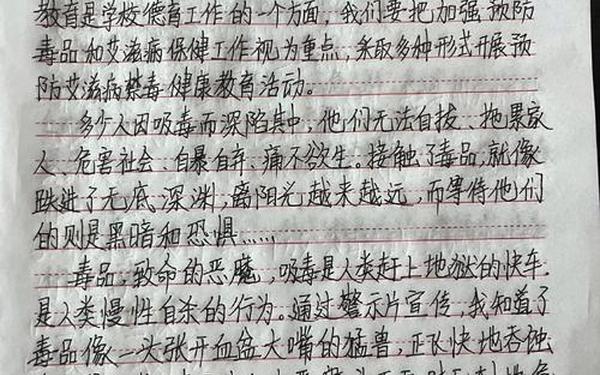 教育是学校德育工作的一个方面，我们要把加强预防
毒品和艾滋病保健工作视为重点，采取多种形式开展预
防艾滋病禁毒健康教育活动。
多少人因吸毒而深陷其中，他们无法自拔、拖累家
人、危害社会、自暴自弃、痛不欲生。接触了毒品，就像
跌进了无底深渊，离阳光越来越远，而等待他们
的则是黑暗和恐惧……
毒品，致命的恶魔，吸毒是人类赶上地狱的快车，
是人类慢性自杀的行为。通过警示片宣传，我知道了
毒品像一头张开血盆大嘴的猛兽，正飞快地吞蚀